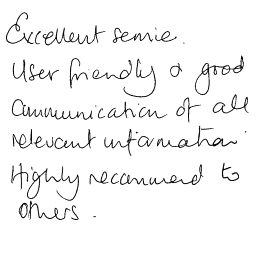 Excellent service.
User friendly & good
Communication of all
relevant information.
Highly recommend to
others.